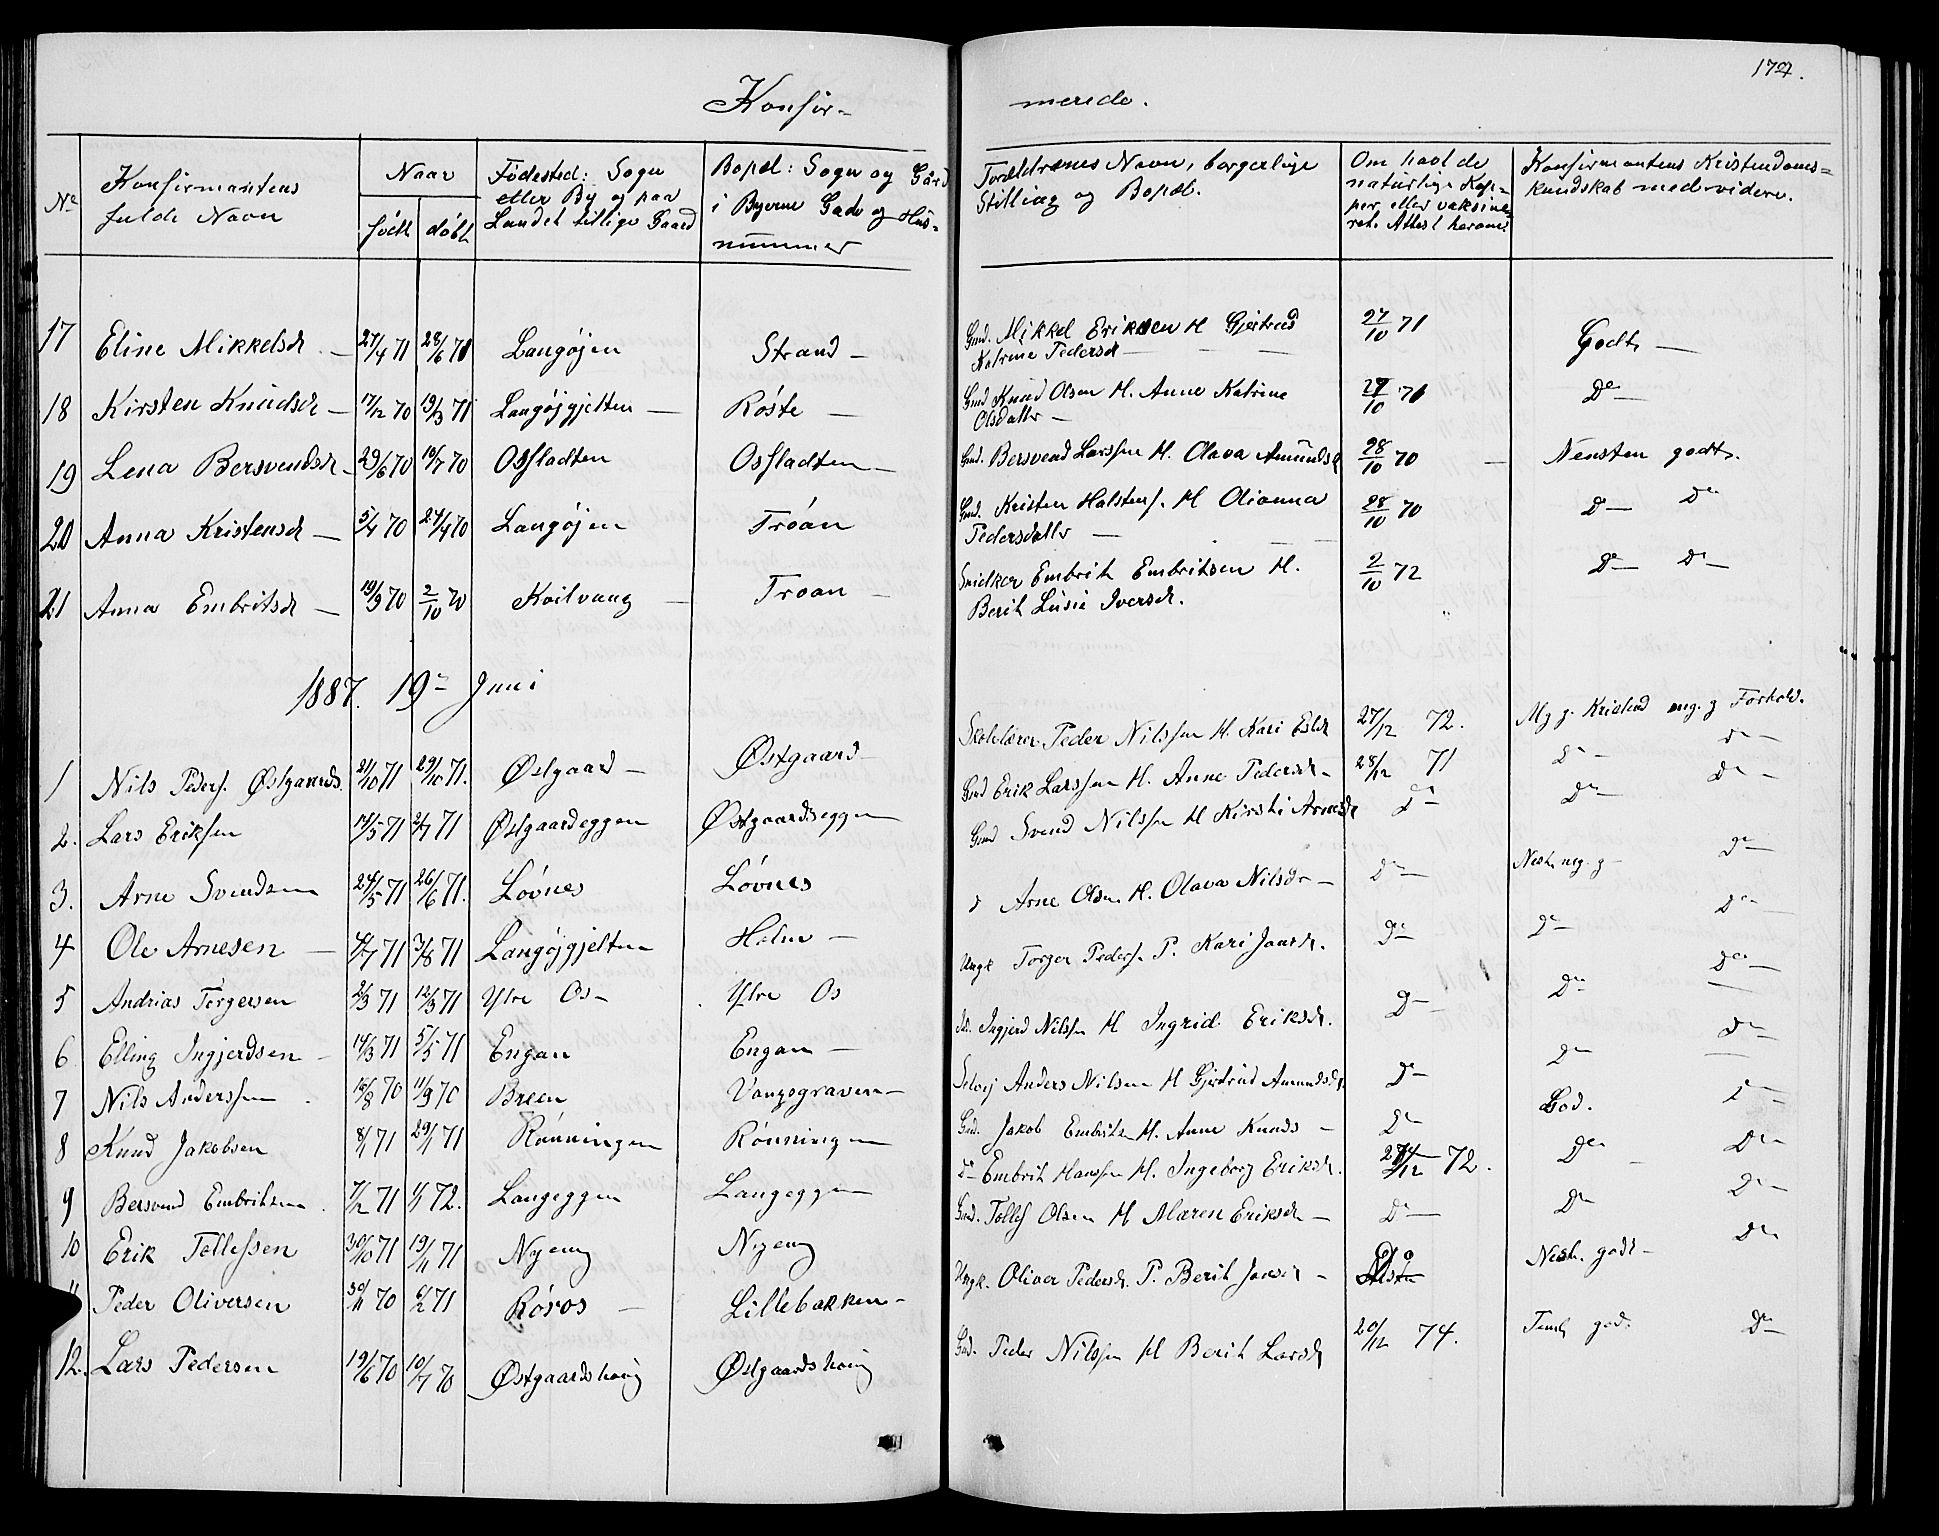 Konfir-
merede.
172.
No
Konfirmantens
fulde Navn
Naar
født
døbt
Fødested: Sogn
eller By og paa
Landet tillige Gaard
Bopæl: Sogn og Gård
i Byerne Gade og Hus-
nummer
Forældrenes Navn, borgerlige
Stilling og Bopæl.
Om havt de
naturlige Kop-
per eller vaksine-
ret. Attest herom.
Konfirmantens Kristendoms-
kundskab med videre.
17 Eline Mikkelsd. 27/4 71 28/6 71 Langøjen Strand - Gmd. Mikkel Eriksen H Gjertrud 27/10 71 Godt -
Katrine Pedersd -
18 Kirsten Knudsd - 17/12 70 19/3 71 Langøjgjelten - Røste - Gmd Knud Olsen H. Anne Katrine 27/10 71 Do -
Olsdatter -
19 Lena Bersvendsd. 29/6 70 10/7 70 Osfladten Osfladten - Gmd. Bersvend Larssen H. Olava Amunds 28/10 70 - Næsten godt.
20 Anna Kristensd - 5/4 70 24/4 70 Langøjen Trøan Gmd. Kristen Halstens. H Olianna 28/10 70 Do - Do
Pedersdatter -
21 Anna Embritsd - 19/9 70 2/10 70 Koilvang - Troan - Snidker Embrit Embritsen H. 2/10 72 Do - Do -
Berit Lusie Iversd.
1887. 19de Juni
1 Nils Peders. Østgaards. 21/10 71 29/10 71. Østgaard - Østgaard - Skolelærer Peder Nilssen H. Kari Esld 27/12 72. Mg g. Kristend mg. g Forhold.
2. Lars Eriksen 14/5 71 2/7 71 Østgaardeggen Østgaardseggen Gmd Erik Larssen H. Anne Pedersd - 28/12 71 Do - Do -
3. Arne Svendsen 24/5 71 26/6 71. Løvnes Løvnes Gmd Svend Nilssen H Kirsti Arnesdr Do - Do - Do -
4 Ole Arnesen - 4/7 71 3/8 71 Langøjgjelten Holm - d Arne Olsen H. Olava Nilsdr - Do - Nest. mg. g - Do -
5 Andrias Torgersen 2/3 71 12/3 71 Ytre Os - Ytre Os Ungk Torger Peders. P. Kari Joasd. Do - Do Do -
6 Elling Ingjerdsen - 14/3 71 5/5 71 Engan Engan - Ingjerd Nilssen H Ingrid Eriksd. Do - Do Do -
7 Nils Anderssen 18/8 70 11/9 70 Breen Vangsgraven - Selvej Anders Nilsen H Gjertrud Amundsdr. Do - Do Do -
8 Knud Jakobsen 8/1 71 29/1 71 Rønningen Rønningen Gmd. Jakob Embritsen H. Anne Knuds - Do God. Do -
9 Bersvend Embritsen 7/12 71 1/1 72. Langeggen Langeggen Do Embrit Hanssen H. Ingeborg Eriksd. 27/12 72. Do Do -
10 Erik Tollefsen 30/10 71 19/11 71 Nyeng Nyeng Gmd. Tollef Olsen H Maren Eriksdr - Do - Do Do -
11 Peder Oliversen 30/11 70 6/2 71 Røros - Lillebakken - Ungk. Oliver Pedersd. P. Berit Joensd - Nest. godt - Do
12. Lars Pedersen 19/6 70 10/7 70 Østgaardshaug Østgaardshaug Gmd. Peder Nilssen H Berit Larsd 20/12 74. god. Do -